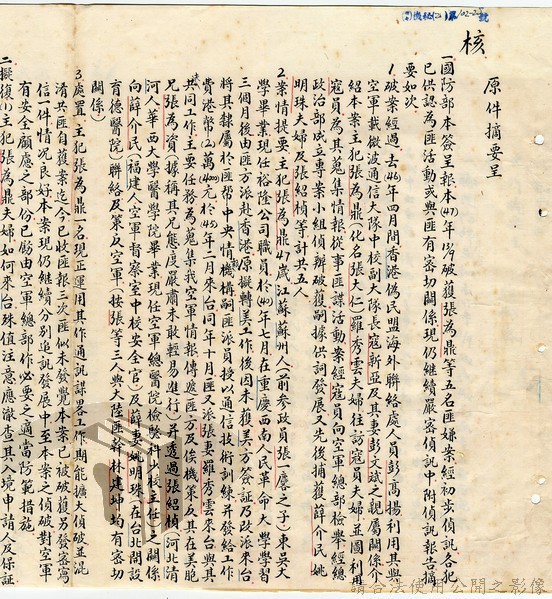 核
原件摘要呈
一國防部本簽呈報本(47)年15/9破獲張為鼎等五名匪嫌案經初步偵訊各犯
已供認為匪活動或與匪有密切關係現仍繼續嚴密偵訊中附偵訊報告摘
要如次
1.破案經過去(46)年四月間香港偽民盟海外聯絡處人員彭高揚利用其與
空軍戴微波通信大隊中校副大隊長寇新亞及其妻彭文斌之親屬關係介
紹本案主犯張為鼎(化名張大仁)羅秀雲夫婦往訪寇員夫婦並圖利用
寇員為其蒐集情報從事匪諜活動案經寇員向空軍總部檢舉經總
政治部成立專案小組偵辦破獲嗣據供詞發展又先後捕獲薛介民姚
明珠夫婦及張紹楨等計共五人
2.案情提要主犯張為鼎47歲江蘇蘇州人(前參政員張一麐之子)東吳大
學畢業現任裕隆公司職員於(40)年七月在重慶西南人民革命大學學習
三個月後由匪方派赴香港原擬轉美工作後因未獲美方簽証乃改派來台
將其隸屬於匪幫中央情機構嗣匪派員授以通信技術訓練并發給工作
費港幣(2)萬(4000)元於(45)年二月來台同年十月匪又派張妻羅秀雲來台與其
共同工作主要任務為蒐集我空軍情報傳遞匪方及俟機策反其在美胞
兄張為資(據稱其尤態度嚴肅未敢輕易進行)并透過張紹楨(河北清
河人華西大學醫學院畢業現任空軍總醫院檢驗科少校主任)之關係
向薛介民(福建人空軍督察室中校安全官)及薛妻姚明珠(在台北開設
育德醫院)聯絡及策反空軍(按張等三人與大陸匪幹林建坤均有密切
關係)
3.處置主犯張為鼎一名現正運用其作通訊謀畧工作期能擴大偵破並混
淆共匪自獲案迄今已收匪報三次匪似未發覺本案已被破獲另發密寫
信一件情況良好本案現仍繼續分別追訊發展中至本案之偵破對空軍
有安全顧慮之部份已飭由空軍總部作必要之適當防範措施
二擬復(1)主犯張為鼎夫婦如何來台殊值注意應澈查其入境申請人及保証
請合法使用公開之影像